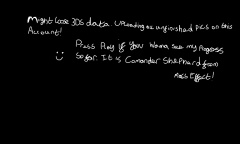 Might loose 3DS data. Uploading ex unfinished pics on this
Account!
Press Play if you wanna see my Progress
So far. It is Comander Shephard from
Mass Effect!
:)